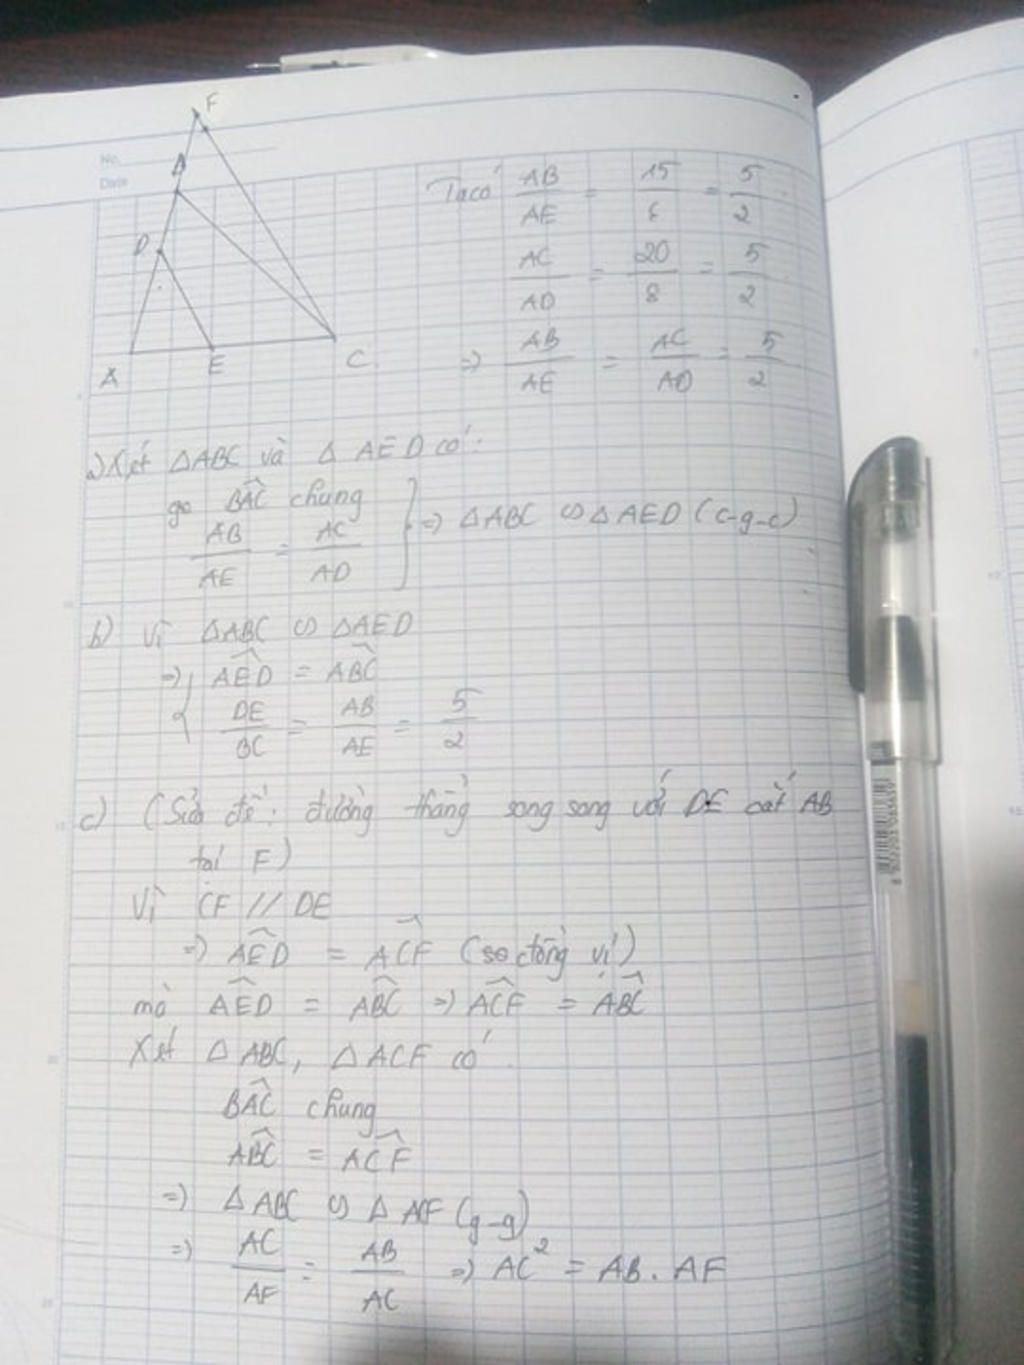 F
No.
Date
D
A
E
C
Ta có AB/AE = 15/6 = 5/2
AC/AD = 20/8 = 5/2
=> AB/AE = AC/AD = 5/2
a) Xét ΔABC và ΔAED có:
góc BAC chung
AB/AE = AC/AD
=> ΔABC ∽ ΔAED (c-g-c)
b) Vì ΔABC ∽ ΔAED
=> AED = ABC
DE/BC = AB/AE = 5/2
c) (Sửa đề: đường thẳng song song với DE cắt AB
tại F)
Vì CF // DE
=> AED = ACF (so đồng vị)
mà AED = ABC => ACF = ABC
Xét ΔABC, ΔACF có
BAC chung
ABC = ACF
=> ΔABC ∽ ΔACF (g-g)
=> AC/AF = AB/AC => AC² = AB. AF